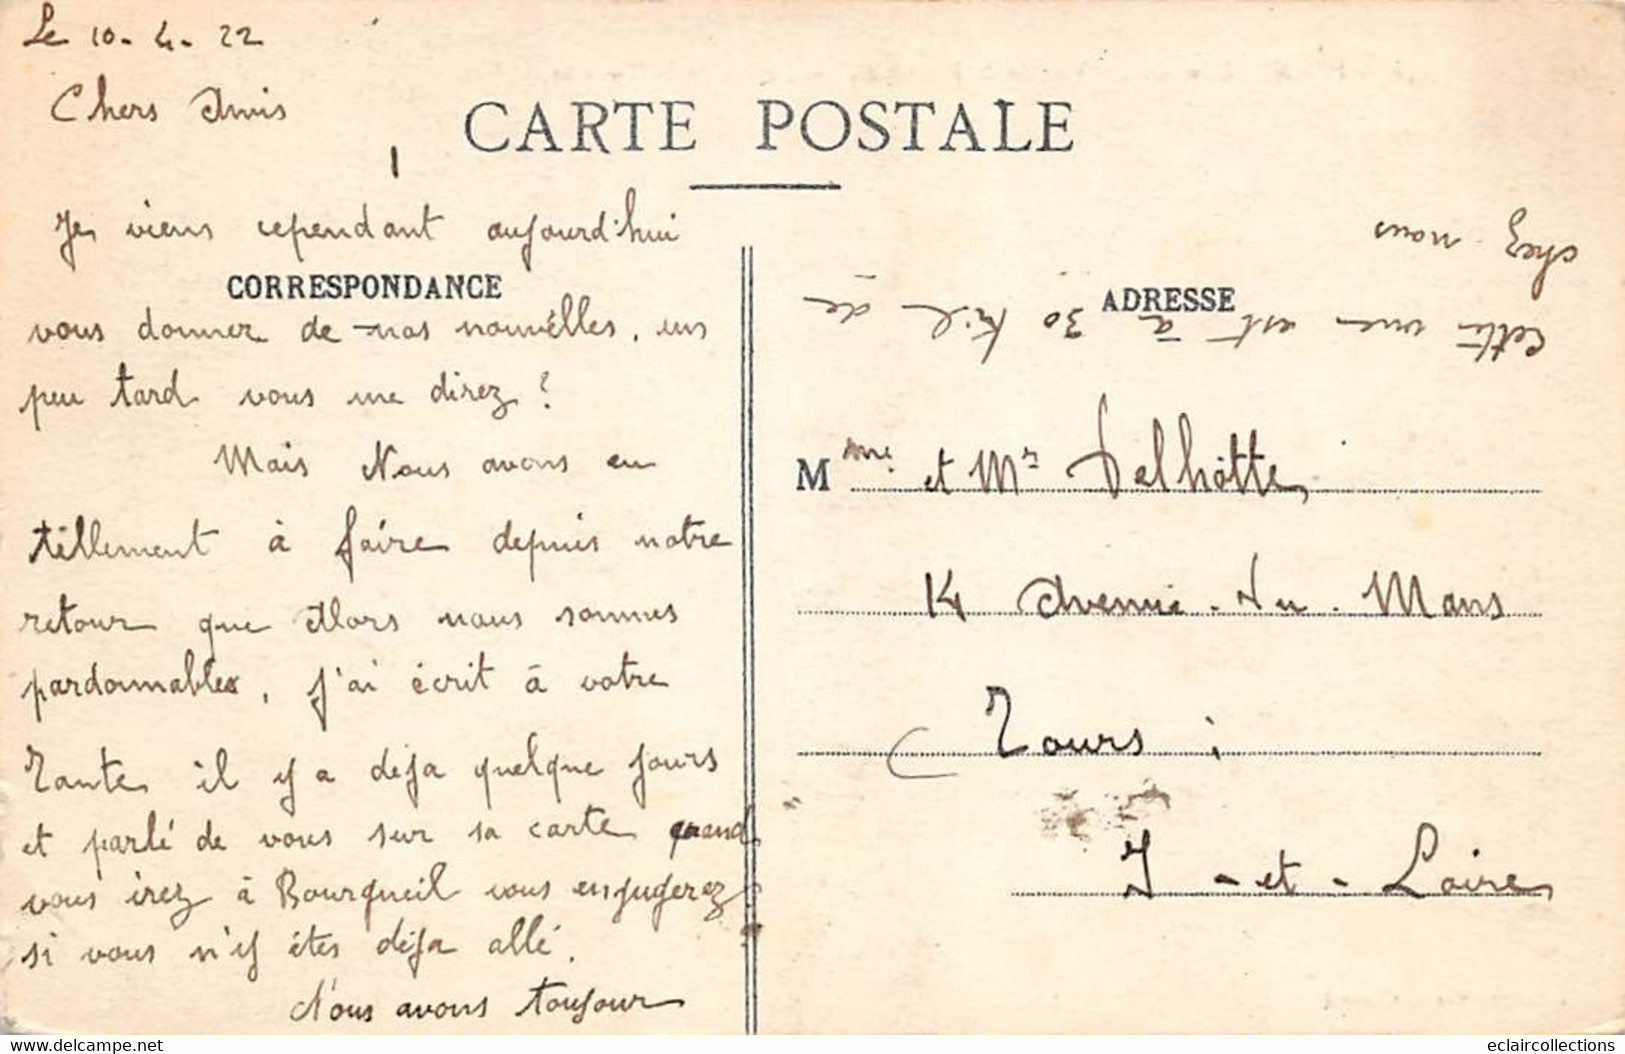 Le 10-4-22
Chers Amis
CARTE POSTALE
1
Je viens cependant aujourd'hui
CORRESPONDANCE
vous donner de nos nouvelles, un
peu tard vous me direz ?
Mais Nous avons eu
tellement à faire depuis notre
retour que Alors nous sommes
pardonnables, J'ai écrit à votre
Tante il y a déja quelque jours
et parlé de vous sur sa carte quand
vous irez à Bourgueil vous en jugerez
si vous n'y êtes déja allé.
Nous avons toujour
ADRESSE
Cette vue est à 30 kil de
chez nous
Mme et Mr Delhôtte
14 Avenue du Mans
Tours
I-et-Loire
delcampe.net
eclaircollections